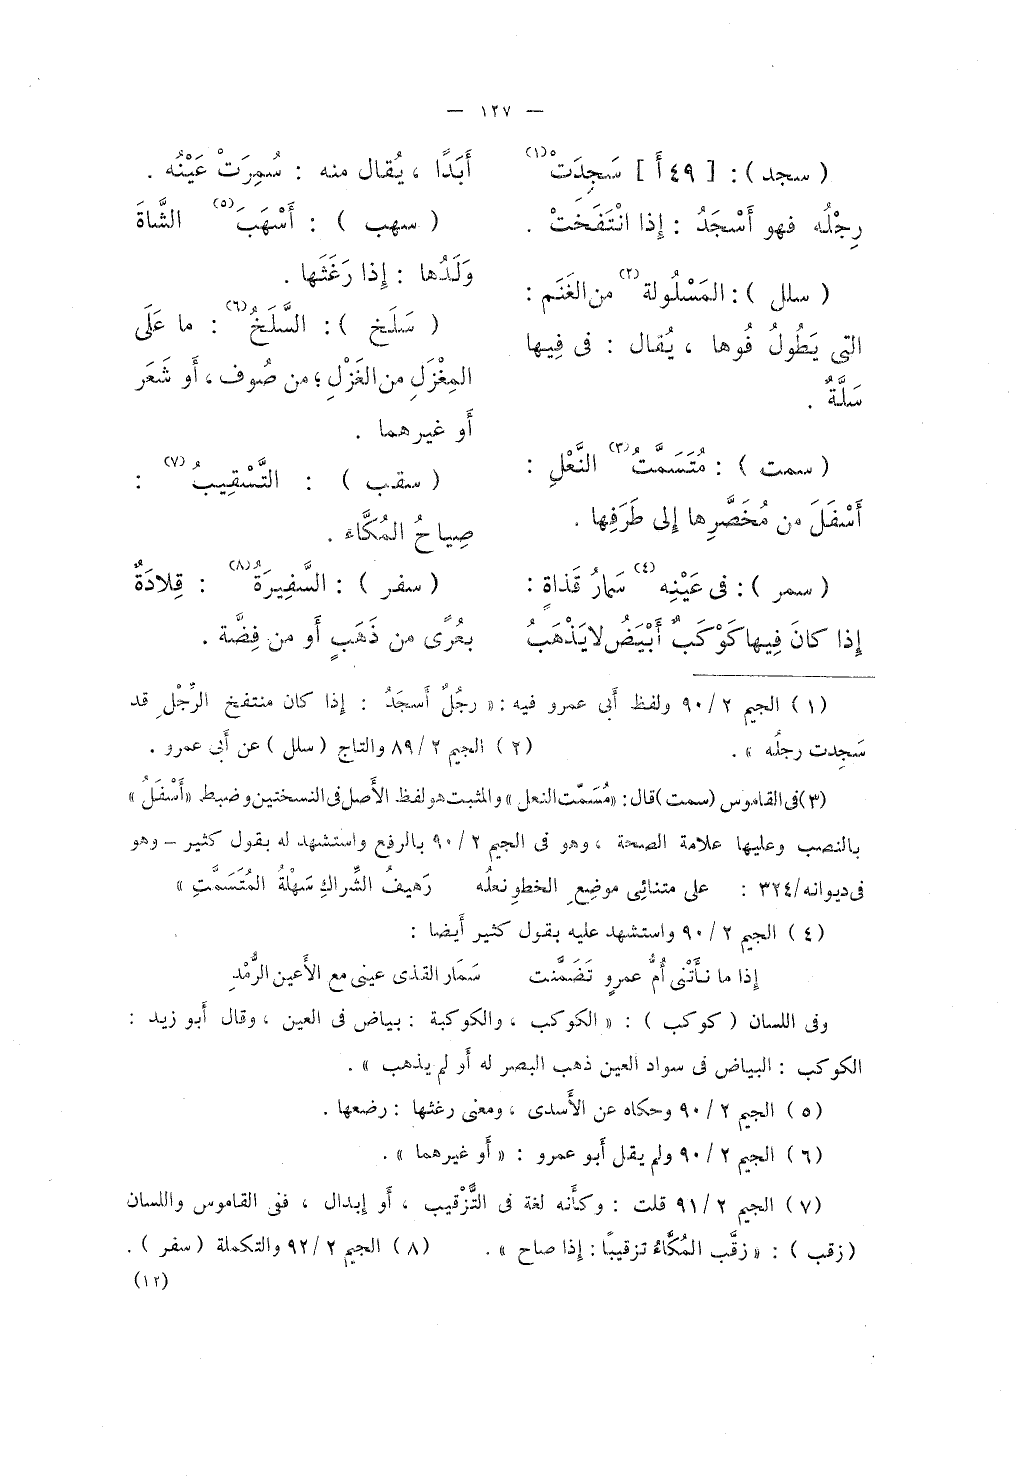 — ١٢٧ —
( سجد ) : [ ٤٩ أ ] سَجِدَتْ (١)
رِجْلُه فهو أَسْجَدُ : إذا انْتَفَخَتْ .
( سلل ) : المَسْلُولة (٢) من الغَنَم :
التى يَطُولُ فُوها ، يُقال : فى فِيها
سَلَّةٌ .
( سمت ) : مُتَسَمَّتُ (٣) النَّعْلِ :
أَسْفَلَ من مُخَصَّرِها إلى طَرَفِها .
( سمر ) : فى عَيْنِه (٤) سَمَارُ قَذاةٍ :
إذا كانَ فِيها كَوْكَبٌ أَبْيَضُ لا يَذْهَبُ
أَبَدًا ، يُقال منه : سُمِرَتْ عَيْنُه .
( سهب ) : أَسْهَبَ (٥) الشَّاةَ
وَلَدُها : إذا رَغَثَها .
( سَلَخ ) : السَّلَخُ (٦) : ما عَلَى
المِغْزَلِ من الغَزْلِ ؛ من صُوف ، أَو شَعَر
أَو غيرهما .
( سقب ) : التَّسْقِيبُ (٧) :
صِياحُ المُكَّاء .
( سفر ) : السَّفِيرَةُ (٨) : قِلادَةٌ
بعُرًى من ذَهَبٍ أو من فِضَّة .
( ١ ) الجيم ٢ / ٩٠ ولفظ أبى عمرو فيه : « رجُلٌ أسجَدُ : إذا كان منتفخ الرِّجْل قد
سَجِدت رجلُه » .
( ٢ ) الجيم ٢ / ٨٩ والتاج ( سلل ) عن أبى عمرو .
( ٣ ) فى القاموس ( سمت ) قال : « مُسَمَّت النعل » والمثبت هو لفظ الأصل فى النسختين وضبط « أَسْفَلَ »
بالنصب وعليها علامة الصحة ، وهو فى الجيم ٢ / ٩٠ بالرفع واستشهد له بقول كثير – وهو
فى ديوانه / ٣٢٤ : على متنائِى موضِعِ الخطو نعلُه رَهيفُ الشِّراكِ سَهْلةُ المُتَسَمَّتِ »
( ٤ ) الجيم ٢ / ٩٠ واستشهد عليه بقول كثير أيضا :
إذا ما نأَتْنى أُمُّ عمروٍ تَضَمَّنت سَمَار القذى عينى مع الأعين الرُّمْدِ
وفى اللسان ( كوكب ) : « الكوكب ، والكوكبة : بياض فى العين ، وقال أبو زيد :
الكوكب : البياض فى سواد العين ذهب البصر له أو لم يذهب » .
( ٥ ) الجيم ٢ / ٩٠ وحكاه عن الأسدى ، ومعنى رغثها : رضعها .
( ٦ ) الجيم ٢ / ٩٠ ولم يقل أبو عمرو : « أو غيرهما » .
( ٧ ) الجيم ٢ / ٩١ قلت : وكأنه لغة فى التَّزْقيب ، أو إبدال ، ففى القاموس واللسان
( زقب ) : « زقَّب المُكَّاءُ تزقيبًا : إذا صاح » .
( ٨ ) الجيم ٢ / ٩٢ والتكملة ( سفر ) .
(١٢)